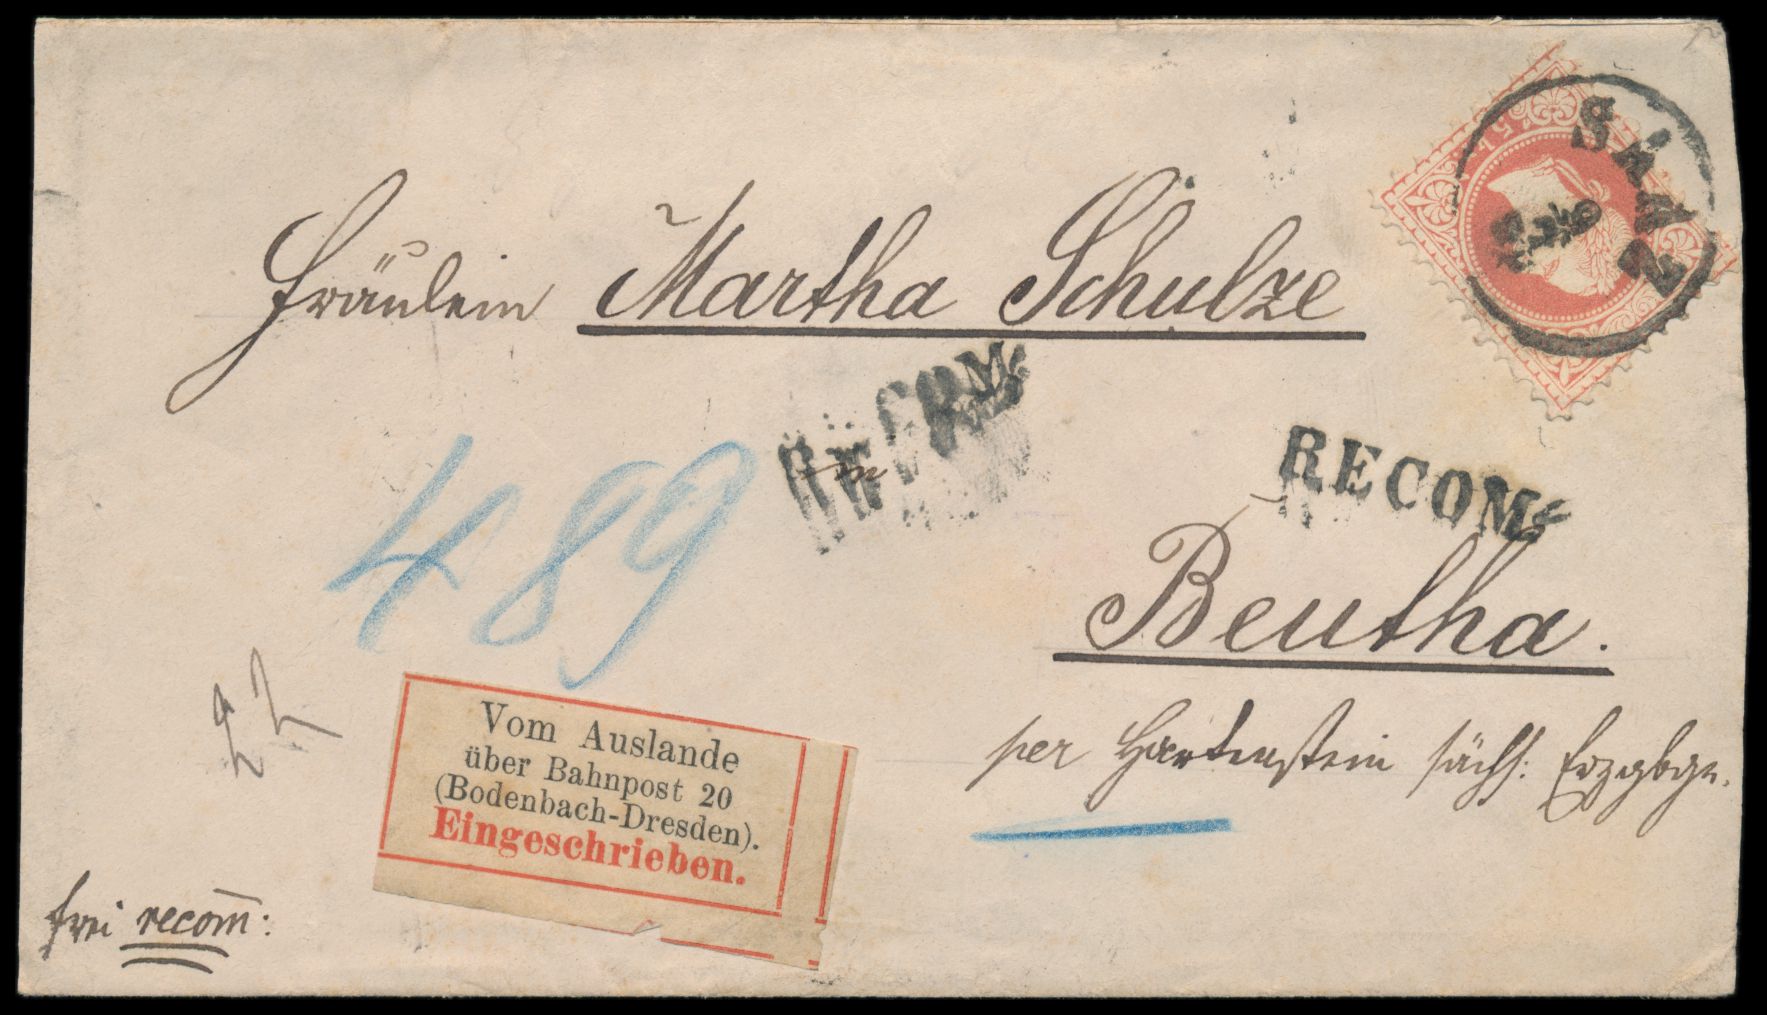 Fräulein Martha Schulze
SAAZ
RECOM:
RECOM:
in
489
Beutha.
per Hartenstein sächs: Erzgbge.
Vom Auslande
über Bahnpost 20
(Bodenbach-Dresden).
Eingeschrieben.
frei recom̅: